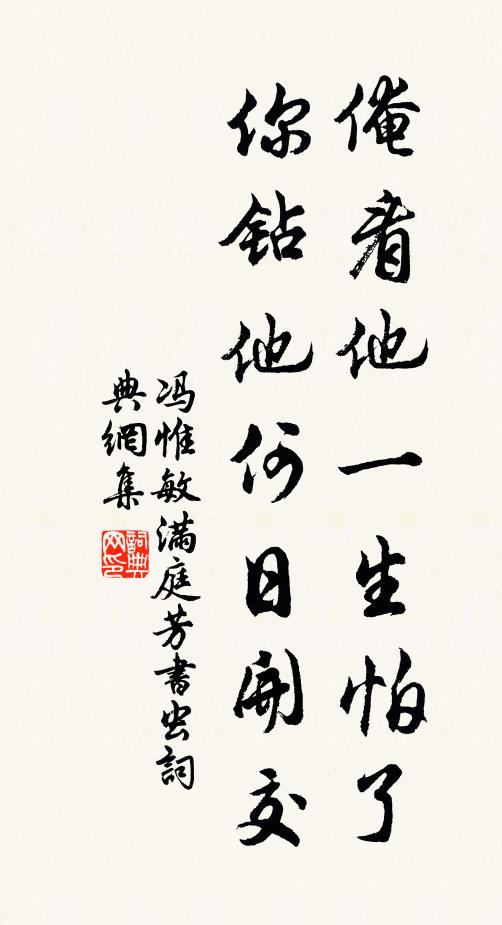 俺看他一生怕了
你鉆他何日開交
冯惟敏满庭芳書虫詞
典網集
詞典网印